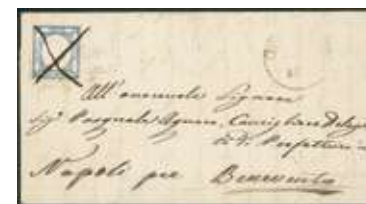 All'onorevole Signore
Sig. Pasquale Consigliere Deleg
di Prefettura
Napoli per Benevento